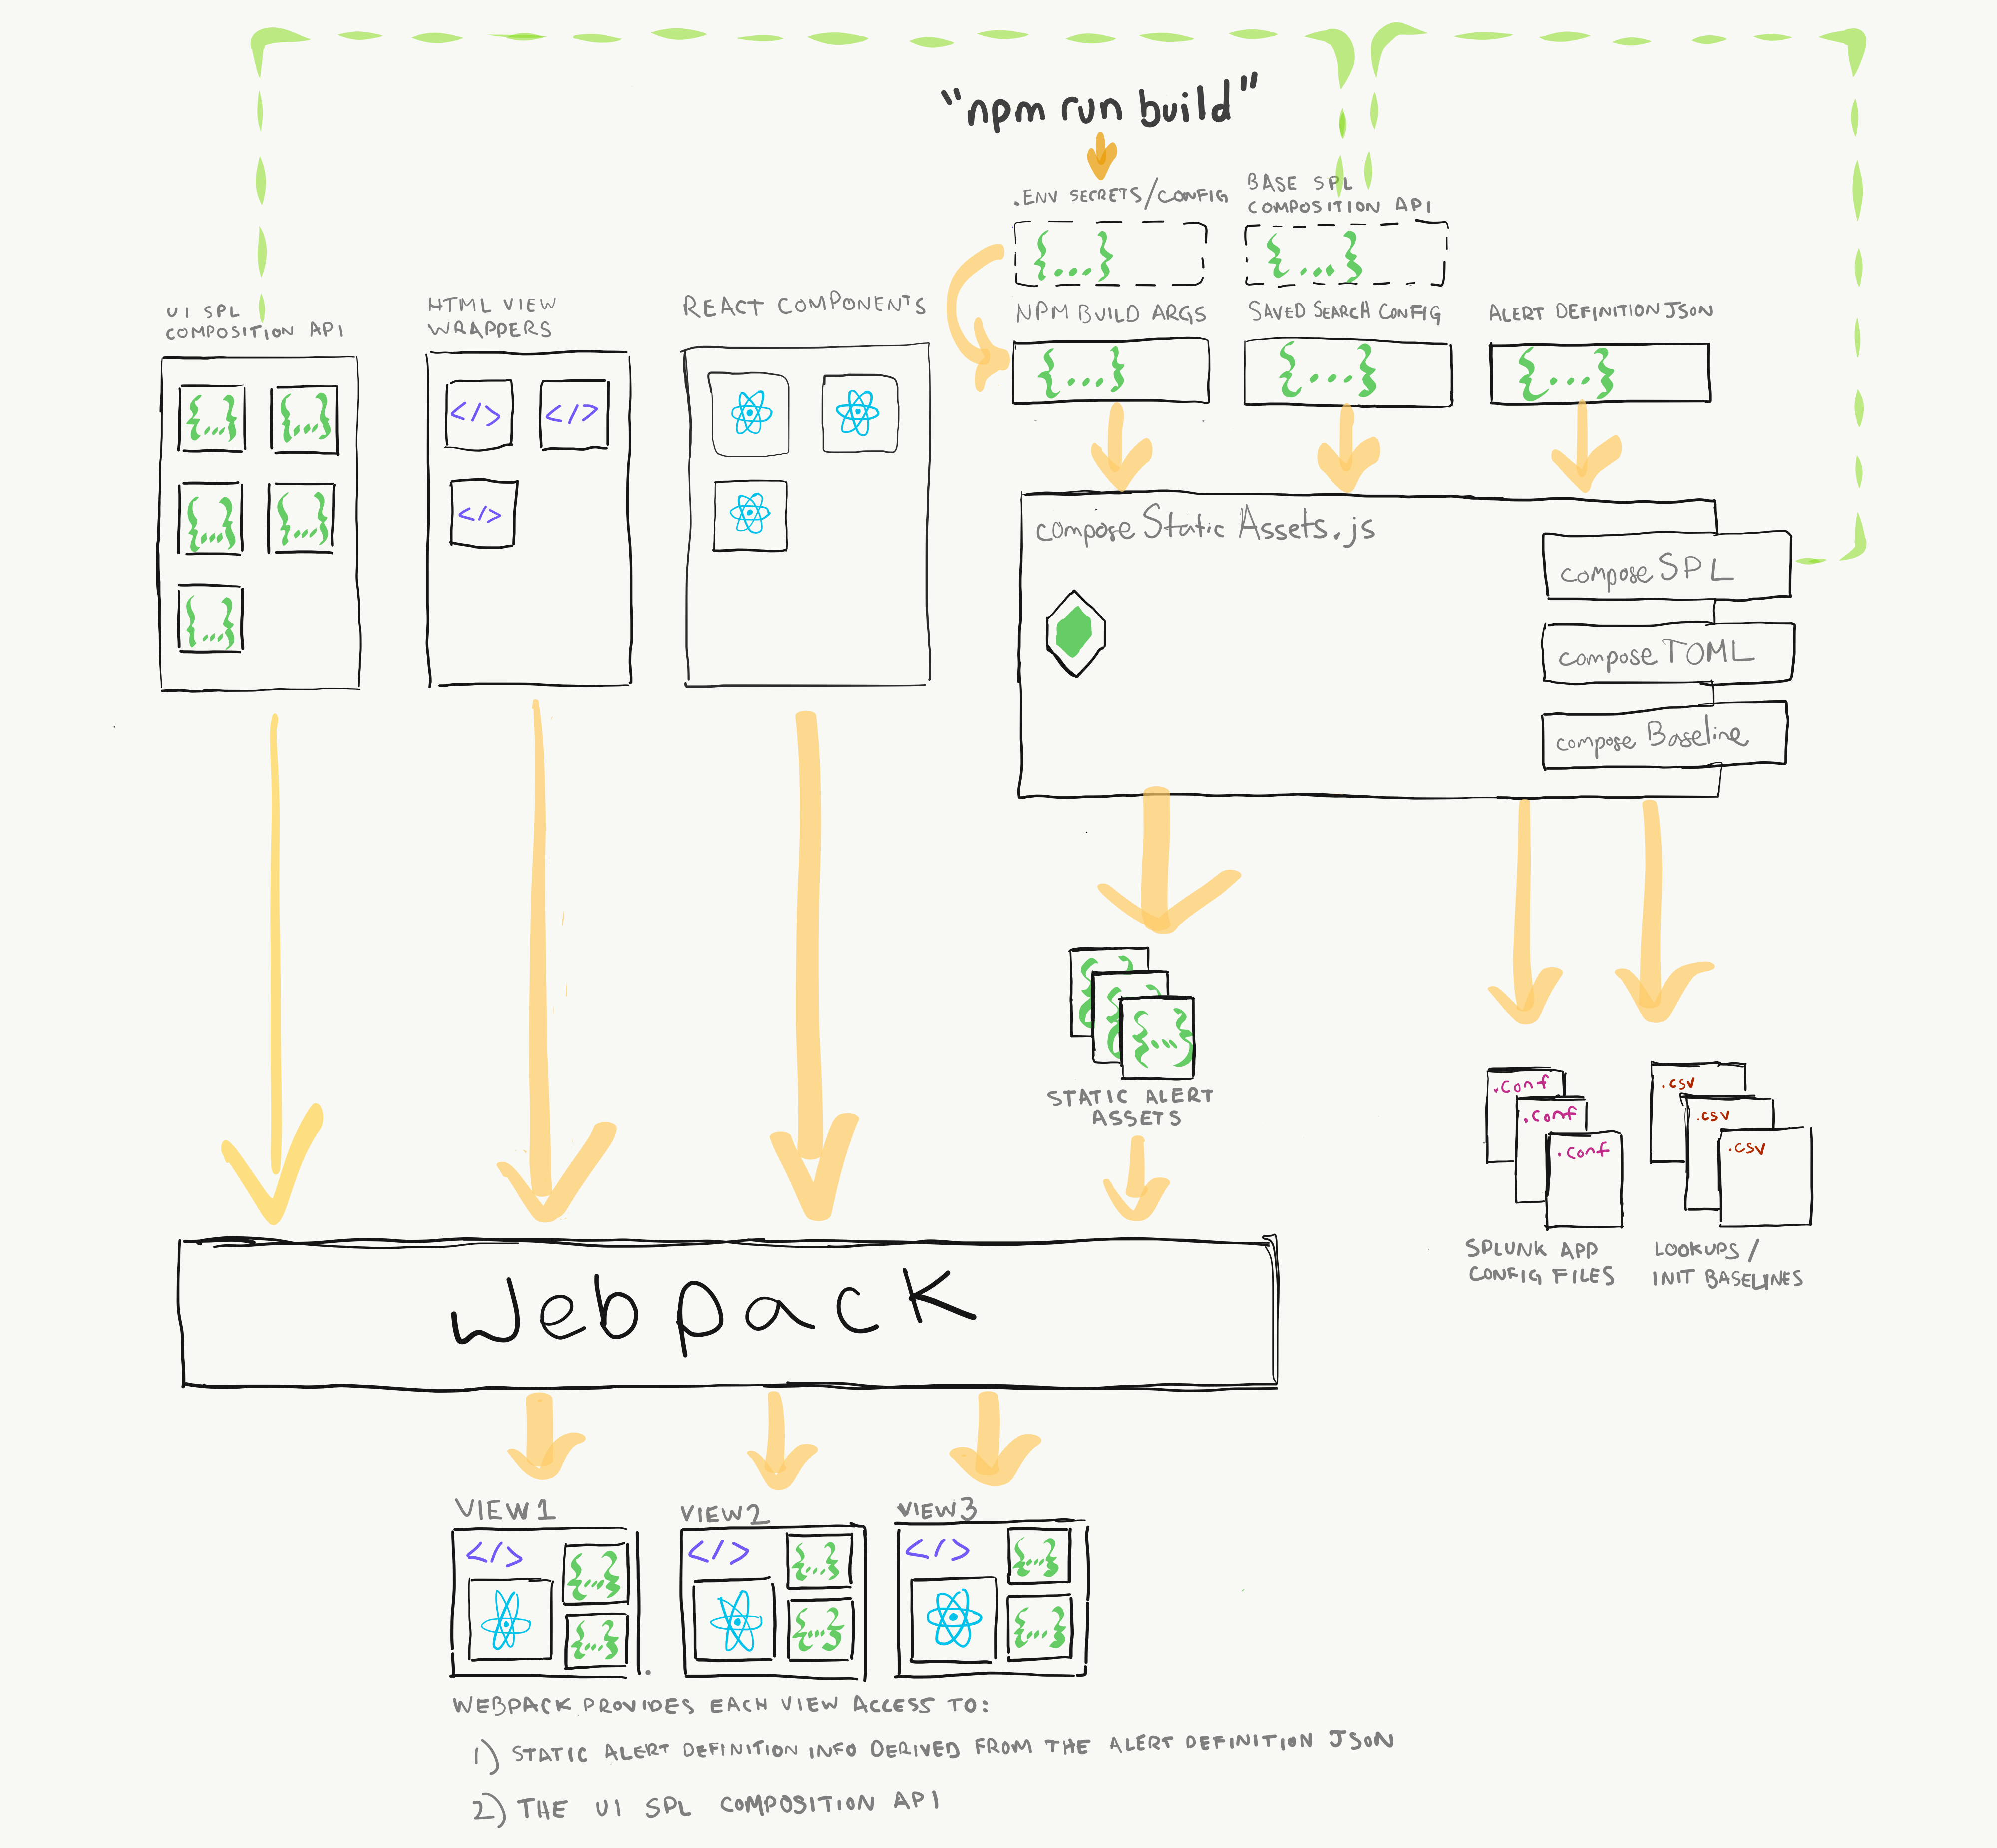 "npm run build"
.ENV SECRETS/CONFIG
BASE SPL
COMPOSITION API
{...}
{...}
UI SPL
COMPOSITION API
HTML VIEW
WRAPPERS
REACT COMPONENTS
NPM BUILD ARGS
SAVED SEARCH CONFIG
ALERT DEFINITION JSON
{...}
{...}
{...}
{...}
{...}
{...}
{...}
{...}
</>
</>
</>
compose Static Assets.js
compose SPL
compose TOML
compose Baseline
{...}
STATIC ALERT
ASSETS
.conf
.conf
.conf
SPLUNK APP
CONFIG FILES
.csv
.csv
.csv
LOOKUPS/
INIT BASELINES
Webpack
VIEW1
</>
{...}
{...}
VIEW2
</>
{...}
{...}
VIEW3
</>
{...}
{...}
WEBPACK PROVIDES EACH VIEW ACCESS TO:
1) STATIC ALERT DEFINITION INFO DERIVED FROM THE ALERT DEFINITION JSON
2) THE UI SPL COMPOSITION API